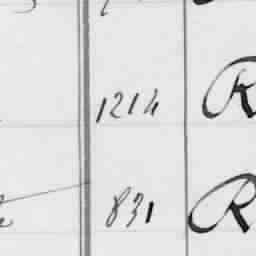 1214 R
831 R